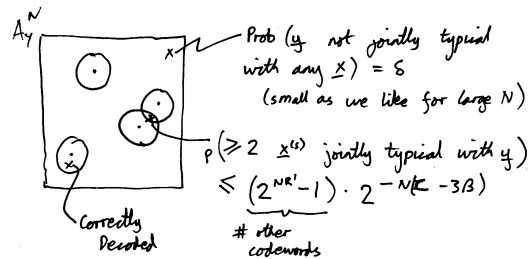 A_y^N
Prob (y not jointly typical
with any x) = δ
(small as we like for large N)
P(≥ 2 x^(s) jointly typical with y)
≤ (2^{NR'} -1) · 2^{-N(I -3β)}
# other
codewords
Correctly
Decoded